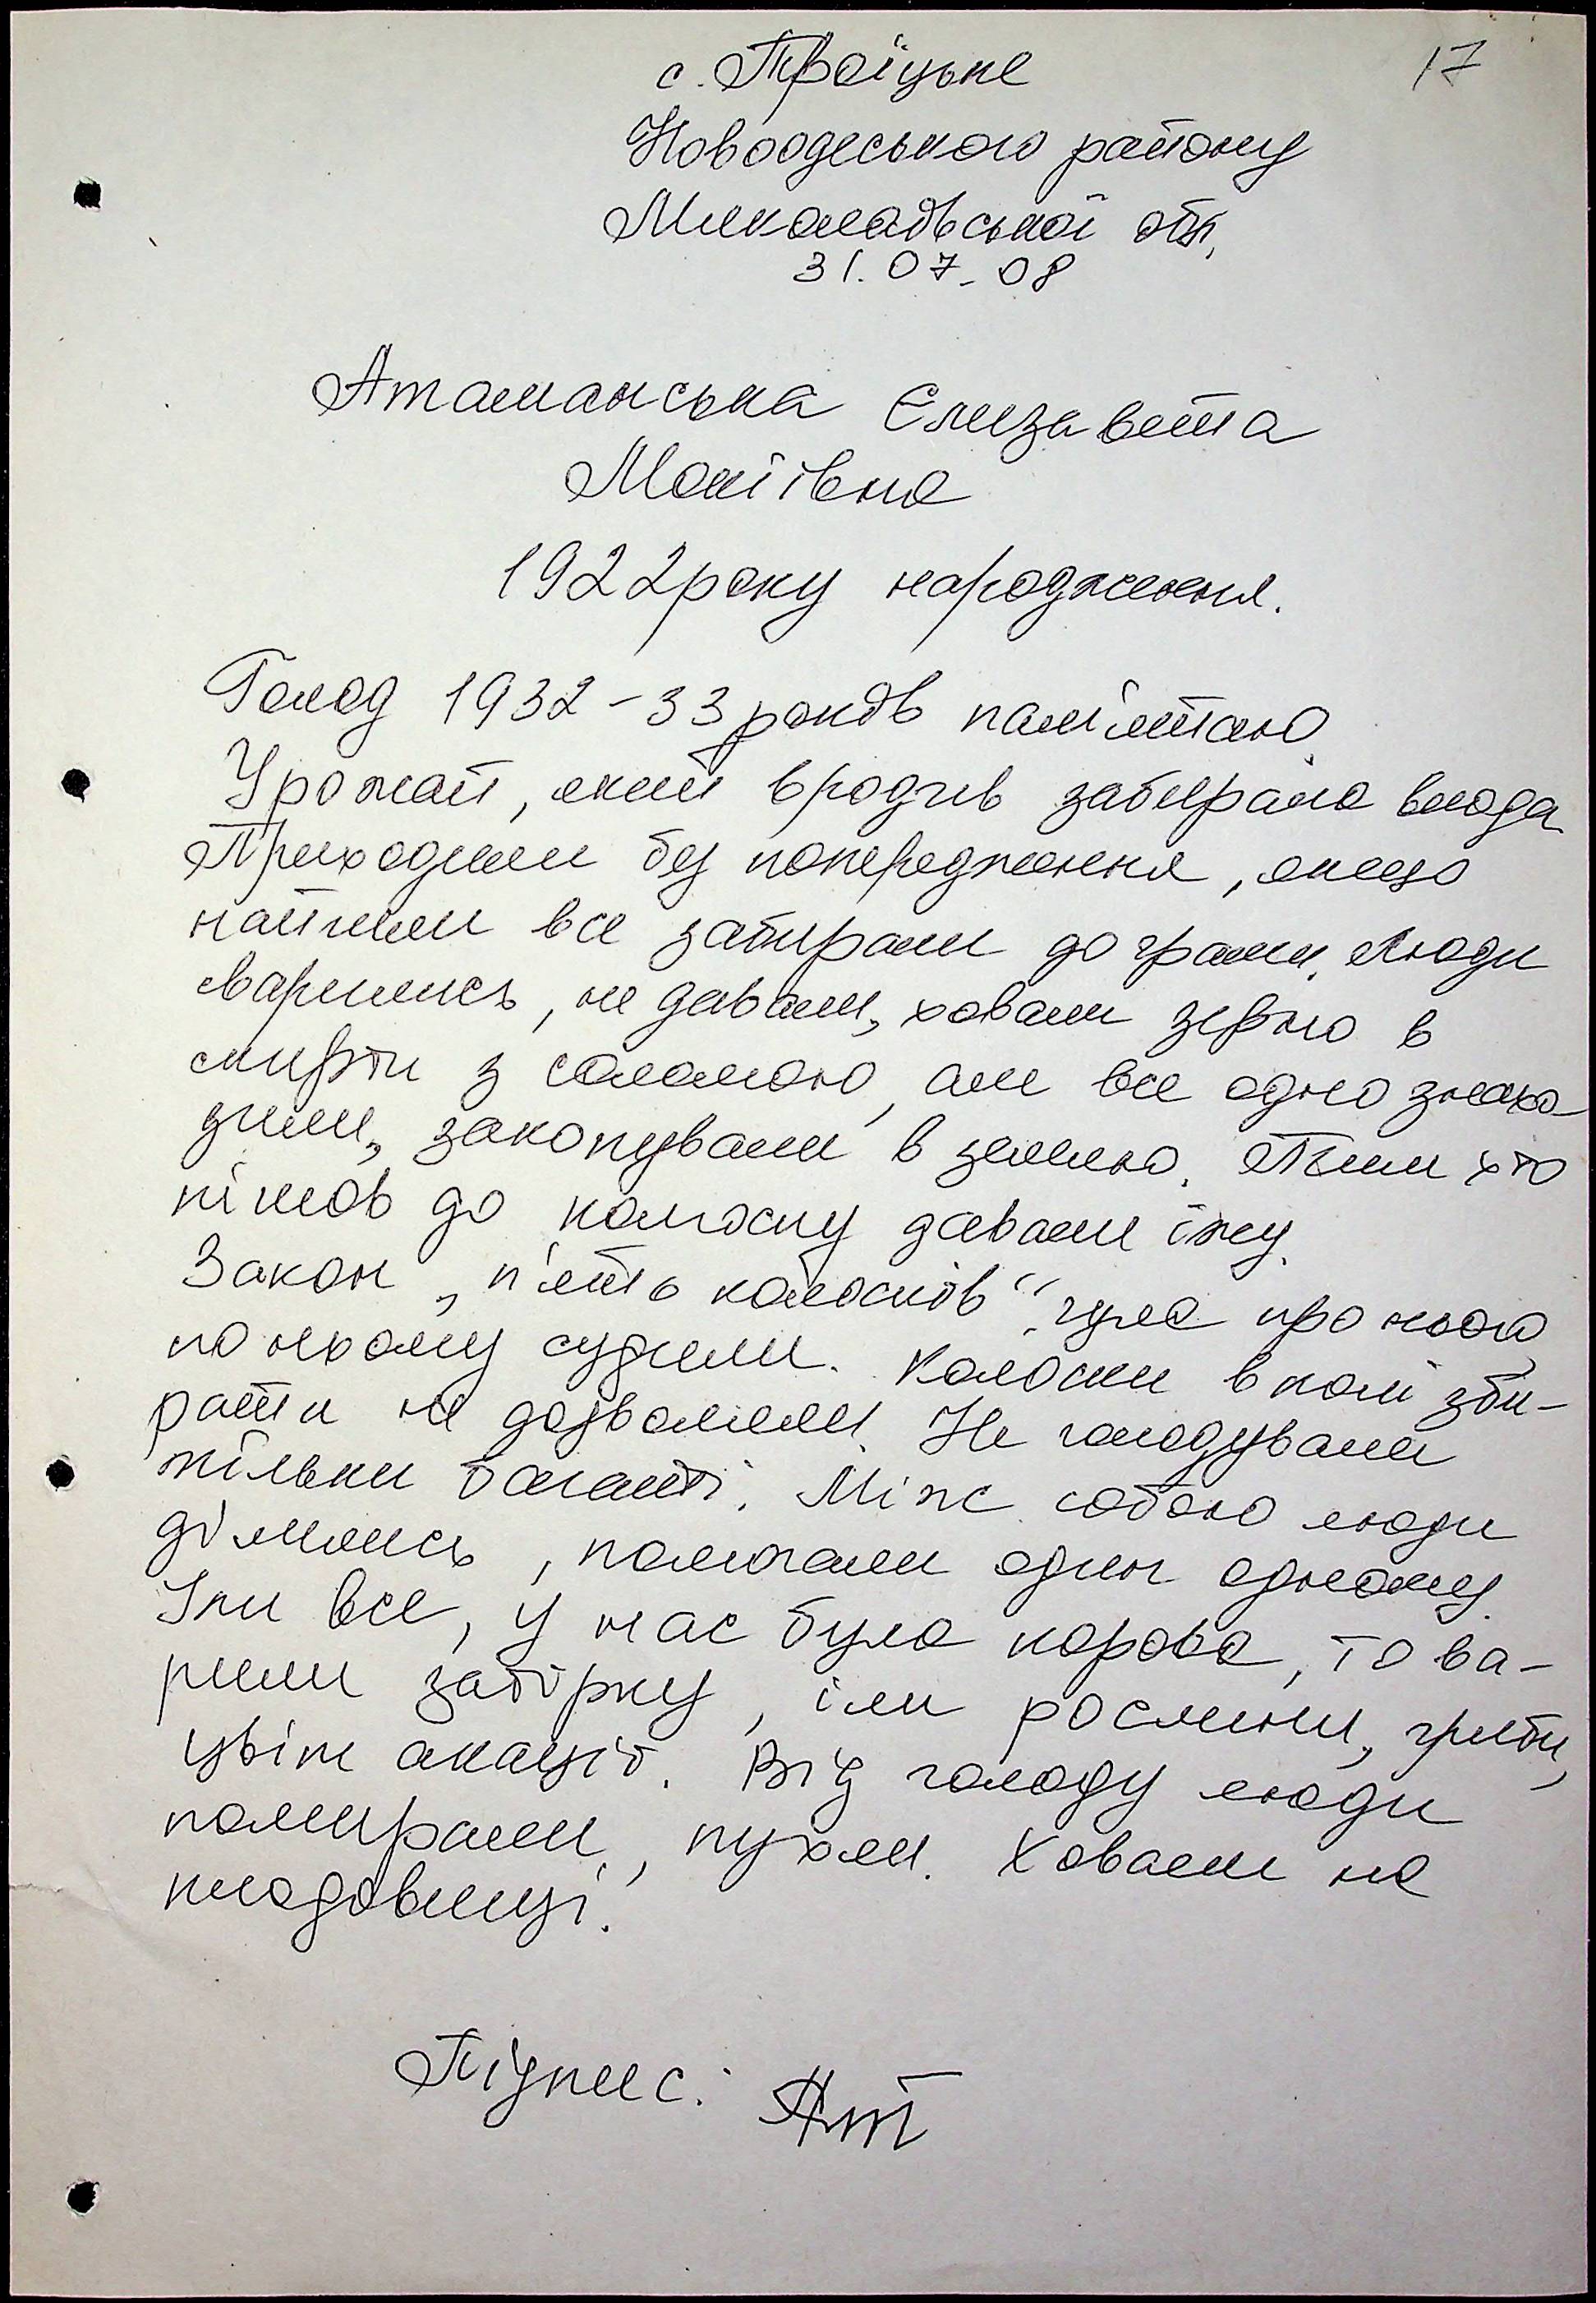 17
с. Троїцьке
Новоодеського району
Миколаївської обл,
31.07.08
Атаманська Єлизавета
Мокіївна
1922 року народження.
Голод 1932-33 років пам'ятаю.
Урожай, який вродив забирала влада.
Приходили без попередження, якщо
найшли все забирали до грами. Люди
сварились, не давали, ховали зерно в
скирти з соломою, але все одно знахо
дили, закопували в землю. Тим хто
пішов до колгоспу давали їжу.
Закон „п'ять колосків" чула про нього
по ньому судили. Колоски в полі зби-
рати не дозволяли. Не голодували
тільки багаті. Між собою люди
ділились, помагали один одному.
Їли все, у нас була корова, то ва-
рили затірку, їли рослини, гриби,
цвіт акації. Від голоду люди
помирали, пухли. Ховали на
кладовищі.
Підпис: Ат